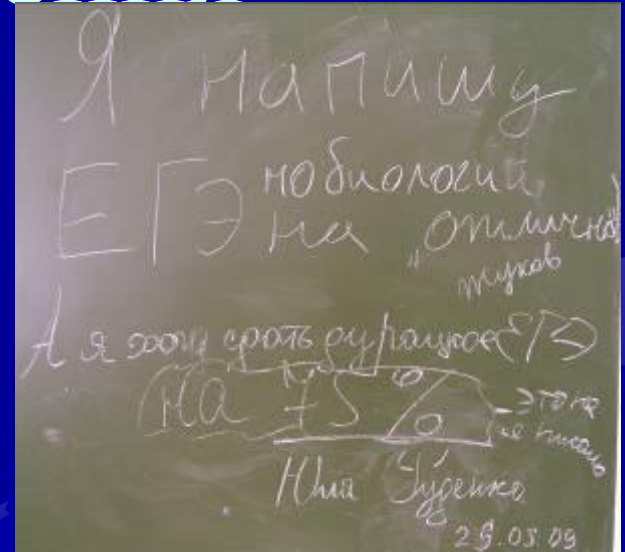 Я напишу
ЕГЭ по биологии
на "отлично"
Жуков
А я хочу сдать дурацкое ЕГЭ
на 75 %
- это не
я писала
Юля
29.05.09